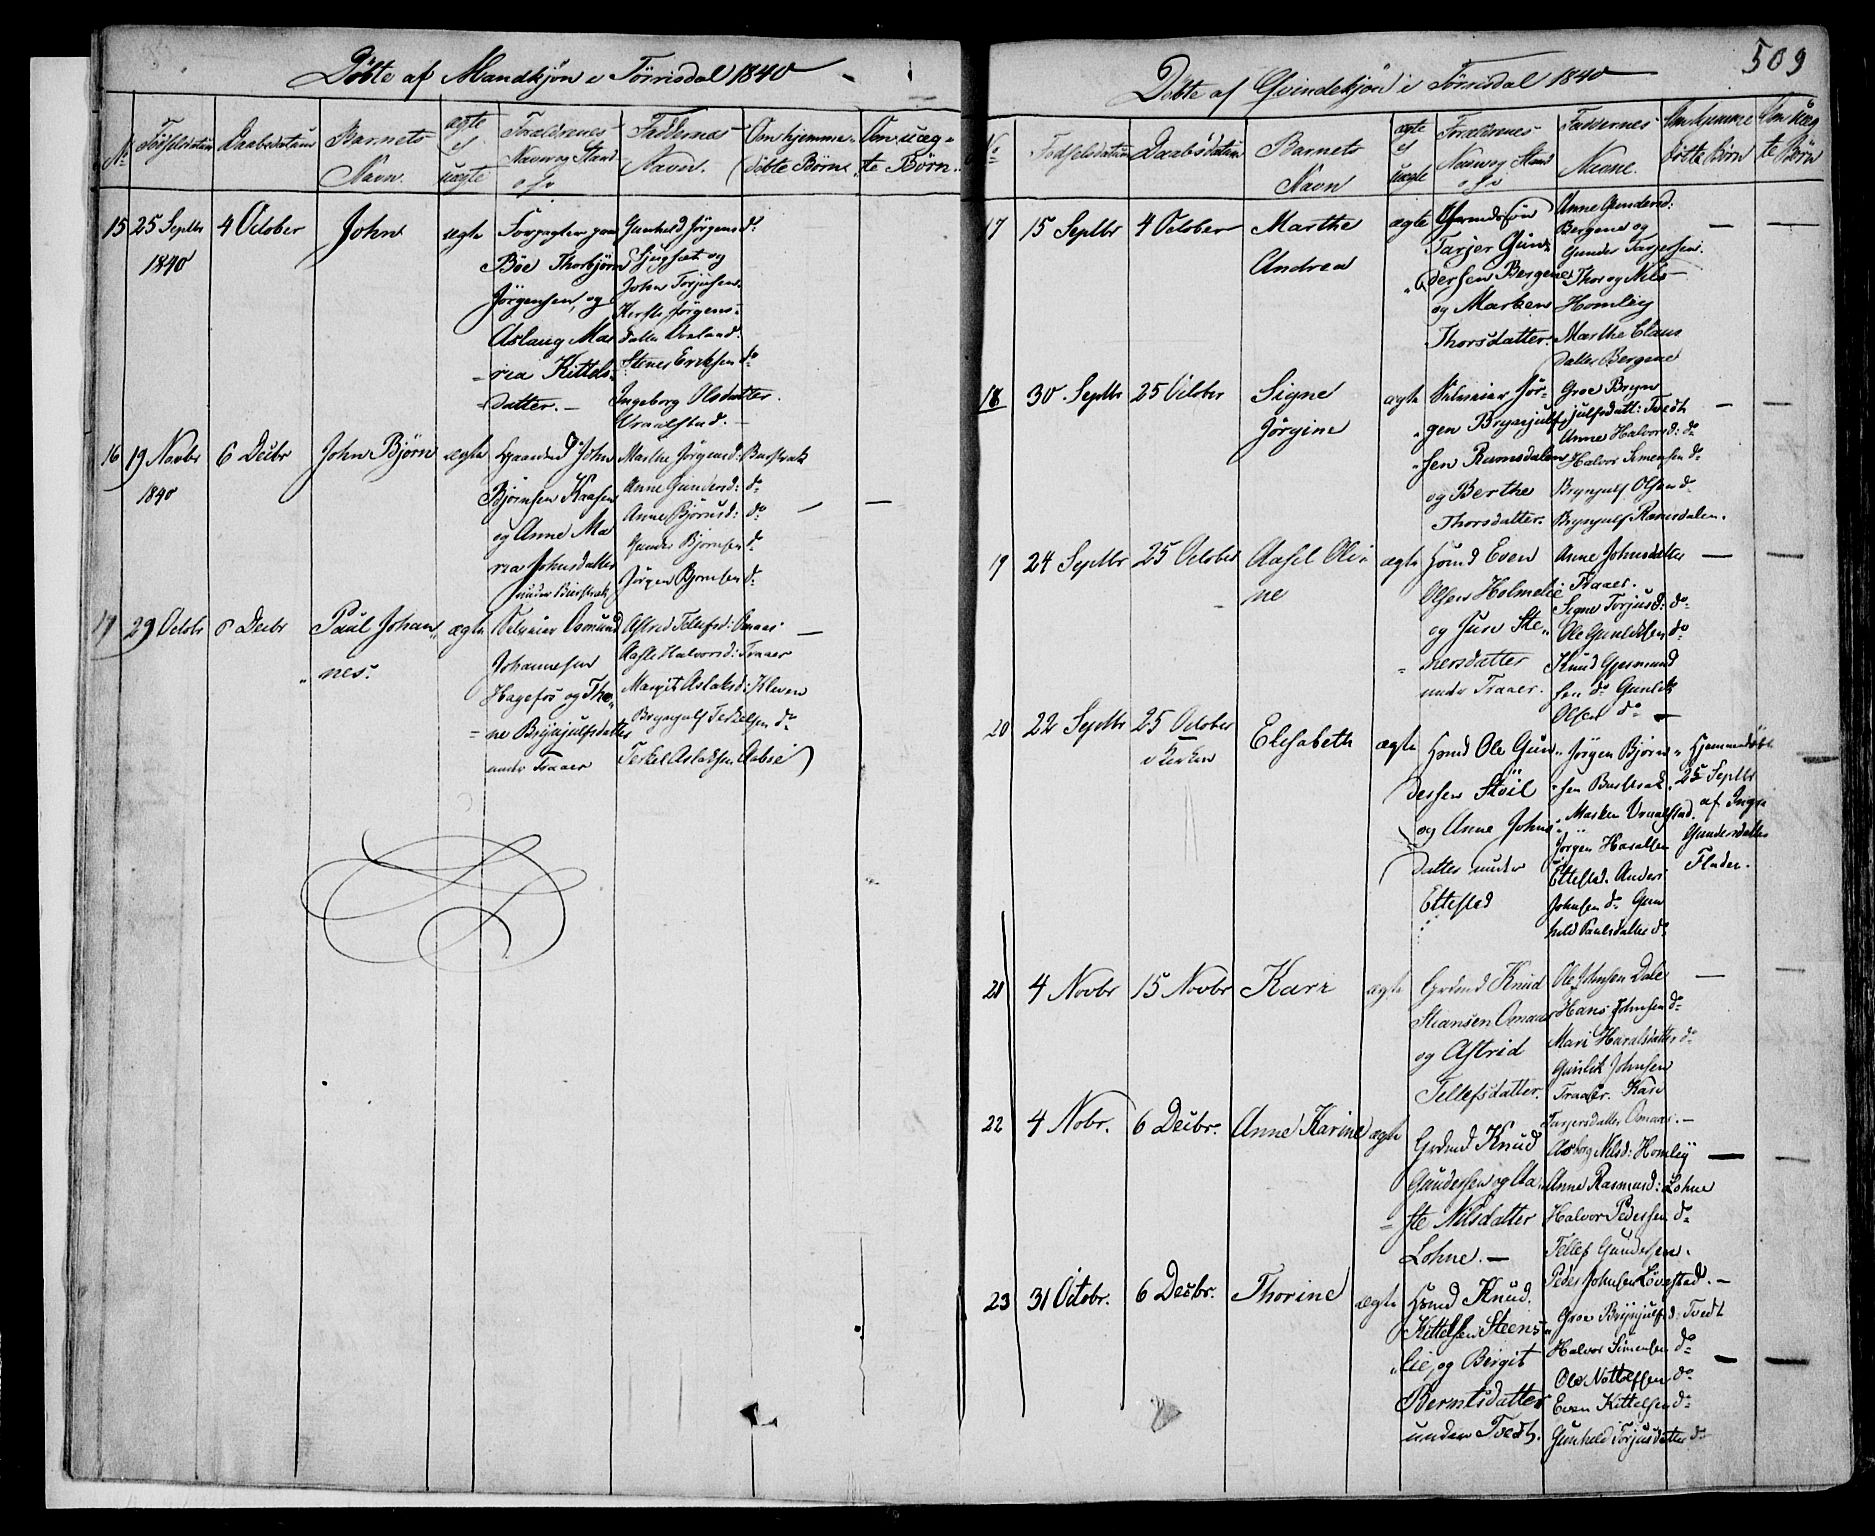 Døbte af Mandkjøn i Tørrisdal 1840
No
Fødselsdatum
Daabsdatum
Barnets
Navn.
ægte
el
uægte
Forældrenes
Navn og Stand
o s v
Faddernes
Navn.
Om hjemme-
døbte Børn
Om uæg-
te Børn.
15
25 Septbr
1840
4 October
John
ægte
Forpagter paa
Bøe Thorbjørn
Jörgensen, og
Aslaug Ma
ria Kittels-
datter.
Gunhild Jörgensd d:
Ljugsæt og
John Torjusen.
Kirsti Jörgens-
datter
Stener Eriksen do
Ingeborg Olsdatter
Vraalstad.
16
19 Novbr
1840
6 Decbr
John Bjørn
ægte
John
Bjørnsen Kaasen
og Anne Ma
ria Johnsdatter
under Bustrak
Marthe Jörgensd: Bustrak
Anne Gundersd: do
Anne Bjørnsd: do
Gunder Bjørnsen do
Jörgen Bjørnsen do
17
29 Octobr
6 Decbr
Paul Johan
nes.
ægte
Selveier Osmund
Johannesen
Hagefos og Tho-
ne Brynjulfsdatter
under Traaer
Astrid Tellefsd: Omaas
Aaste Halvorsd: Traaer
Margit Aslaksd: Kleven
Brynjulf Terkelsen do
Terkel Aslaksen Aabøe
509
Døbte af Qvindekjøn i Tørrisdal 1840
No
Fødselsdatum
Daabsdatum
Barnets
Navn
ægte
el
uægte
Forældrenes
Navn og Stand
o s v
Faddernes
Navne.
Om hjemme
døbte Børn
Om uæg
te Børn
17
15 Septbr
4 October
Marthe
Andrea
ægte
Tarjer Gun-
dersen Bergene
og Marken
Thorsdatter
Anne Gundersd:
Bergene og
Gunder Tarjersen.
Thor og Nils
Homlig
Marthe Claus
datter Bergene
18
30 Septbr
25 October
Signe
Jörgine
ægte
Selveier Jör-
gen Brynjulf
sen Rumsdalen
og Berthe
Thorsdatter.
Groe Bryn
julfsdatt: Tvedt
Anne Halvorsd: do
Halvor Simensen do
Brynjulf Olsen do
Brynjulf Ramsdalen.
19
24 Septbr
25 October
Aasel Oli
ne
ægte
Hsmd Even
Olsen Holmelie
og Juro Ste-
nersdatter
under Traaer.
Anne Johnsdatter
Traaer.
Signe Torjusd: do
Ole Gunleksen do
Knud Gjermund
sen do Gunlek
Olsen do
20
22 Septbr
25 October
i Kirken
Elisabeth
ægte
Hsmd Ole Gun
dersen Støil
og Anne Johns
datter under
Ettestad
Jörgen Bjørn
sen Bustrak.
Marken Vraalstad.
Jörgen Haralsen
Ettestad. Anders
Johnsen do Gun
hild Paulsdatter do
Hjemmedøbt
25 Septbr
af Inger
Gundersdatter
Fladen.
21
4 Novbr
15 Novbr
Kari
ægte
Grdmd Knud
Stiansen Omaas
og Astrid
Tellefsdatter.
Ole Johnsen Dale
Hans Johnsen do
Mari Haralsdatter do
Gunlek Johnsen
Traaer. Kari
Tarjersdatter Omaas.
22
4 Nobr.
6 Decbr.
Anne Karine
ægte
Grdmd Knud
Gundersen og Aa-
ste Nilsdatter
Lohne.
Aasborg Nilsd: Homlig
Anne Rasmusd: Lohne
Halvor Pedersen do
Tellef Gundersen.
Peder Johnsen Lövestad.
23
31 Octobr.
6 Decbr.
Thorine
ægte
Hsmd Knud
Kittelsen Steens-
lie, og Birgit
Berntsdatter
under Tvedt.
Groe Brynjulfsd: Tvedt
Halvor Simensen do
Ole Nottolfsen do
Even Kittelsen do
Gunhild Torjusdatter do